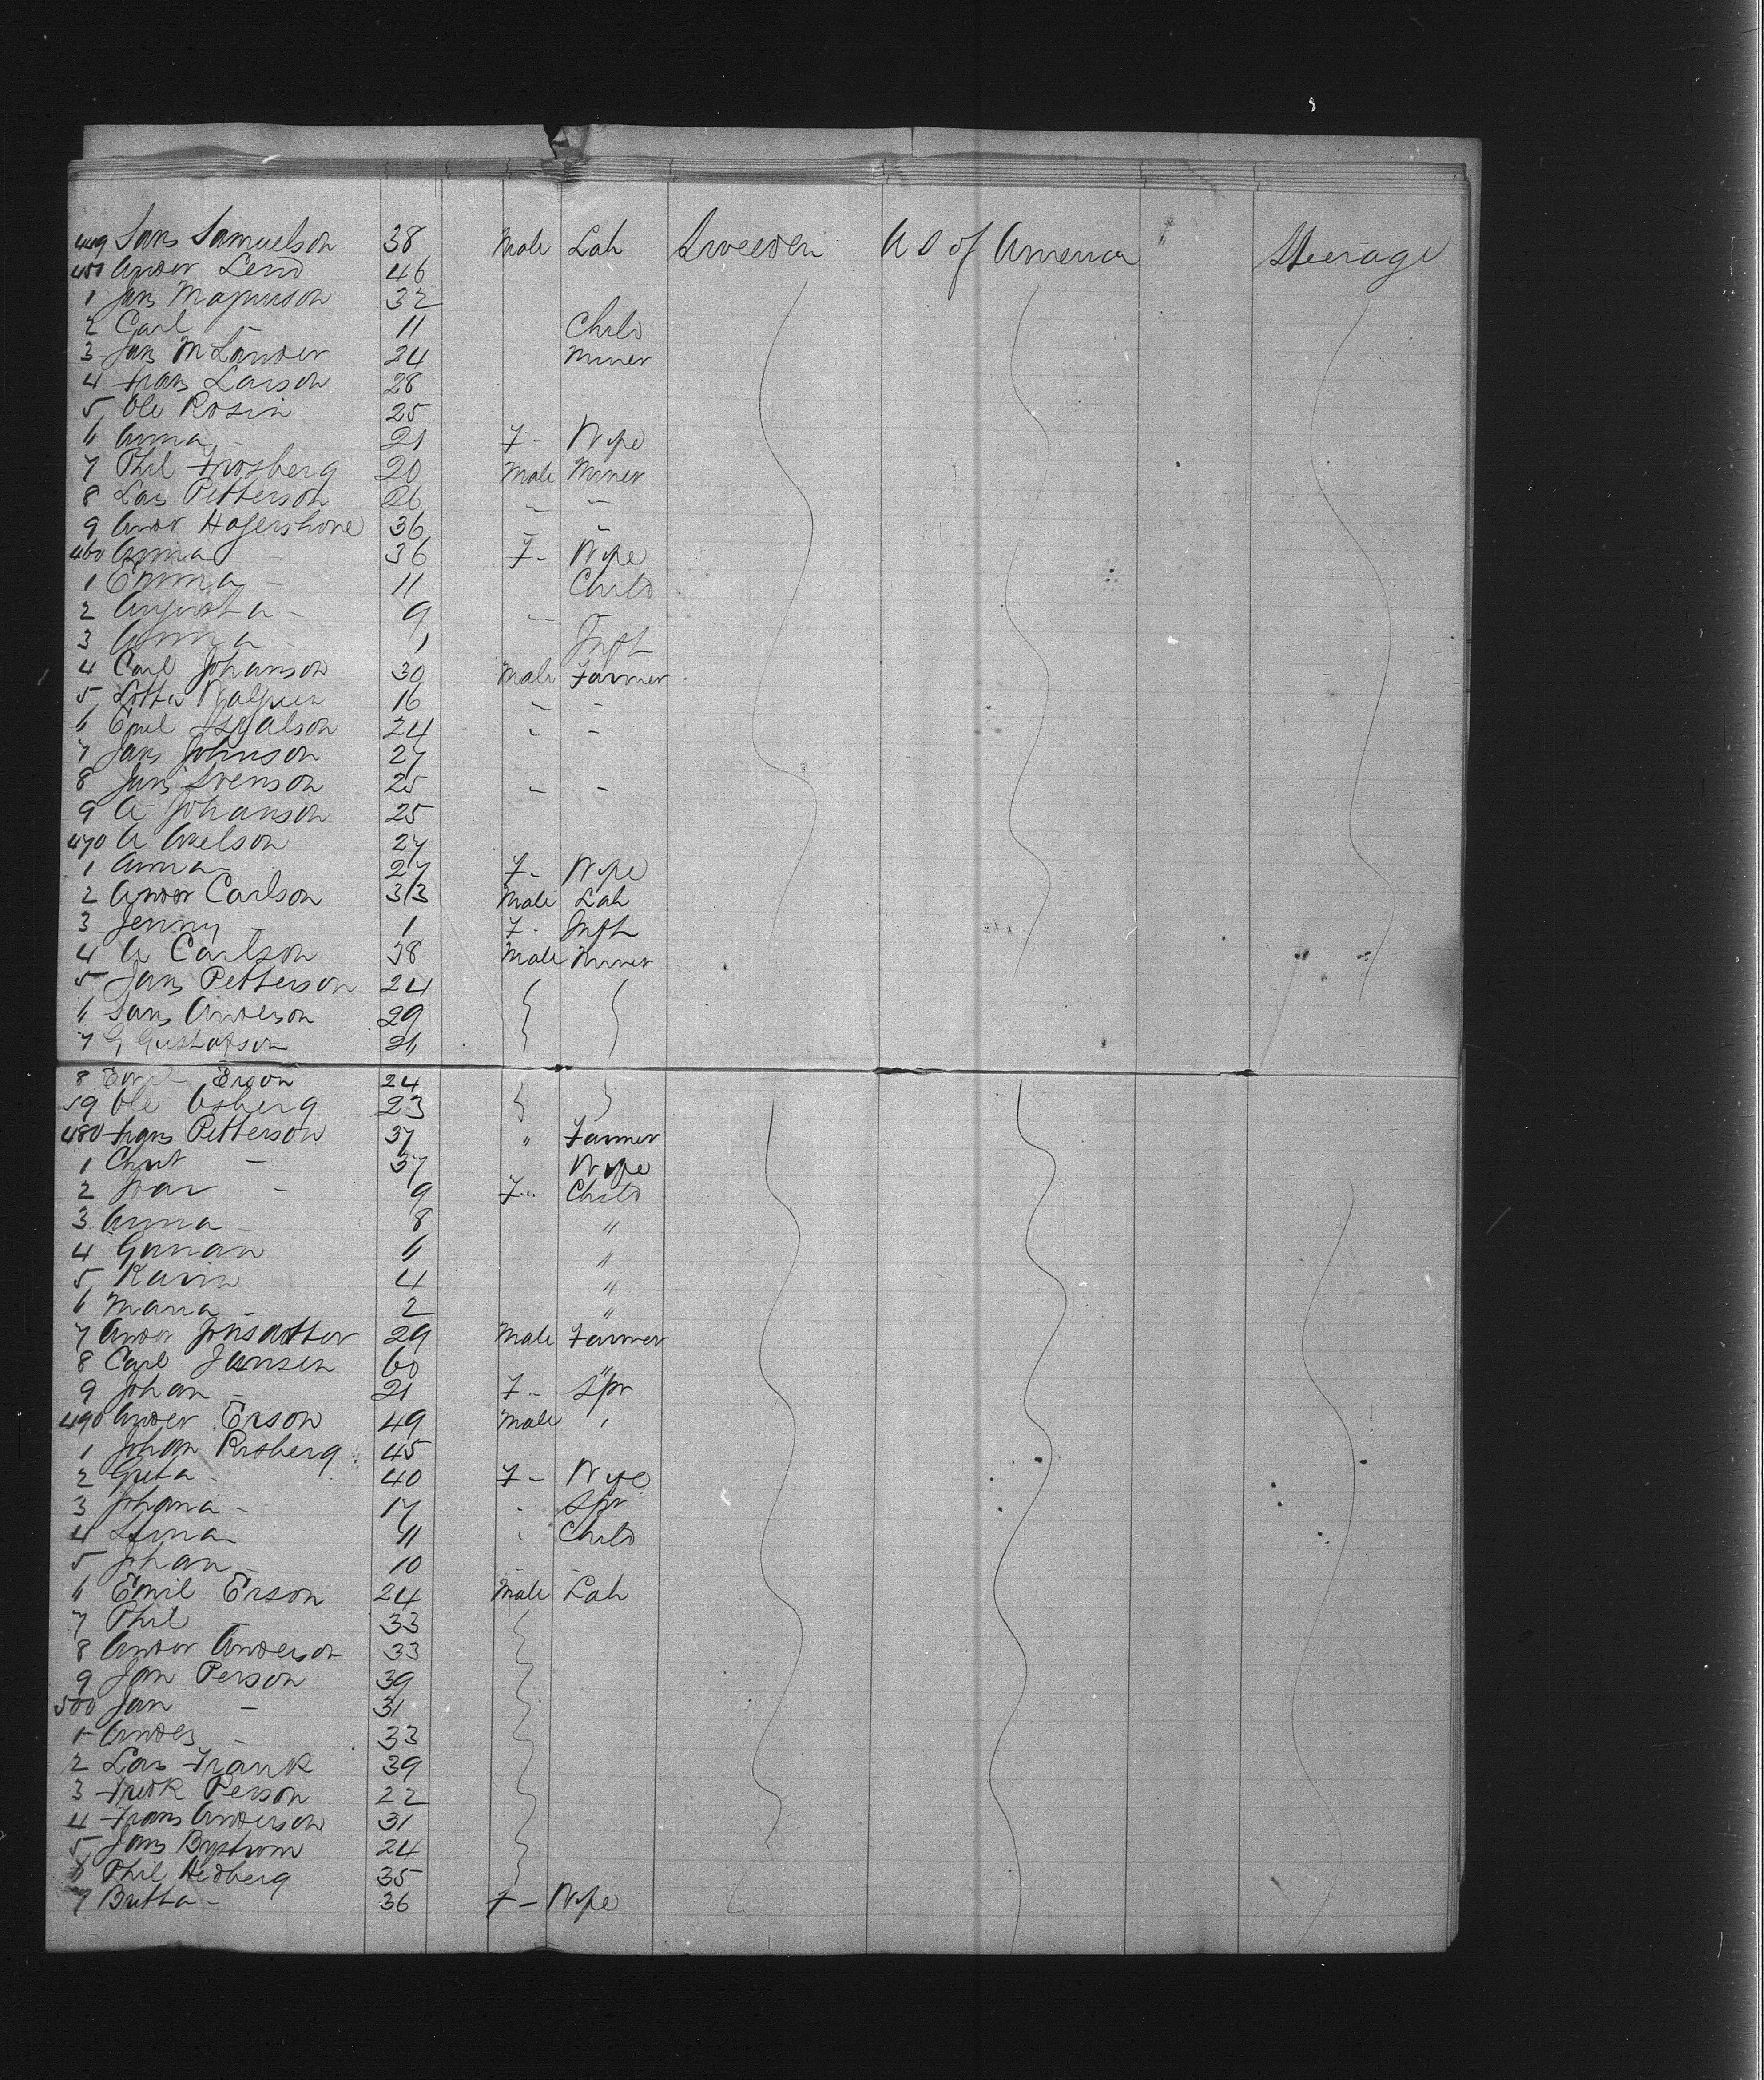 449 Lars Samuelson 38 Male Lab Sweeden U S of America Steerage
450 Ander Lend 46
1 Jans Magnuson 32
2 Carl - 11 Child
3 Jans M Lander 24 Miner
4 Frans Larson 28
5 Ole Rosin 25
6 Anna - 21 F - Wife
7 Phil Frosberg 20 Male Miner
8 Lars Petterson 26 - -
9 Ander 36 -
460 Anna - 36 F - Wife
1 Emma - 11 Child
2 Augusta - 9 -
3 Anna - 1 Inft
4 Carl Johanson 30 Male Farmer
5 Lotta 16 - -
6 Emil 24 - -
7 Jans Johnson 27
8 Jans Svenson 25 - -
9 A Johanson 25
470 A Axelson 27
1 Anna 27 F - Wife
2 Ander Carlson 33 Male Lab
3 Jenny - 1 F - Inft
4 A Carlson 38 Male Miner
5 Jans Petterson 24
6 Lars Anderson 29
7 G Gustafson 26
8 Emil Erson 24
9 Ole Osberg 23
480 Frans Petterson 37 " Farmer
1 Christ - 37 Wife
2 - 9 F " Child
3 Anna - 8 "
4 6 "
5 Karin 4 "
6 Maria - 2 "
7 Ander Jonsdotter 29 Male Farmer
8 Carl Jansen 60 "
9 Johan - 21 F - Spr
490 Ander Erson 49 Male '
1 Johan Risberg 45
2 Greta - 40 F - Wife
3 Johana - 17 - Spr
4 Stina 11 - Child
5 Johan - 10
6 Emil Erson 24 Male Lab
7 Phil 33
8 Ander Anderson 33
9 Jan Person 39
500 Jan - 31
1 Andes - 33
2 Lars Frank 39
3 Fredk Person 22
4 Frans Anderson 31
5 Jans Bystrom 24
6 Phil Hedberg 35
7 Britta - 36 F - Wife